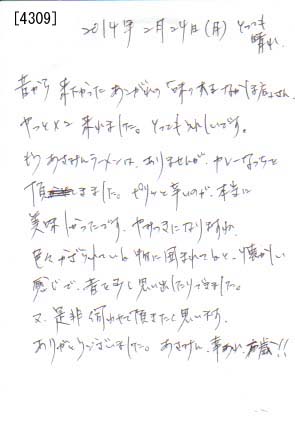 [4309]
2014年2月24日(月) とっても
晴れ
昔から 来たかった あこがれの
やっと×2 来れました。とってもうれしいです。
もう あさみんラーメンは、ありませんが、カレーなっとを
頂きました。ピリッと辛いのが、本当に
美味しかったです。やみつきになりますね。
色々 かざられている 物に囲まれていると、懐かしい
感じで、昔を少し思い出したりできました。
又、是非 伺わせて頂きたく思います。
ありがとうございました。 あさみん、 万歳!!